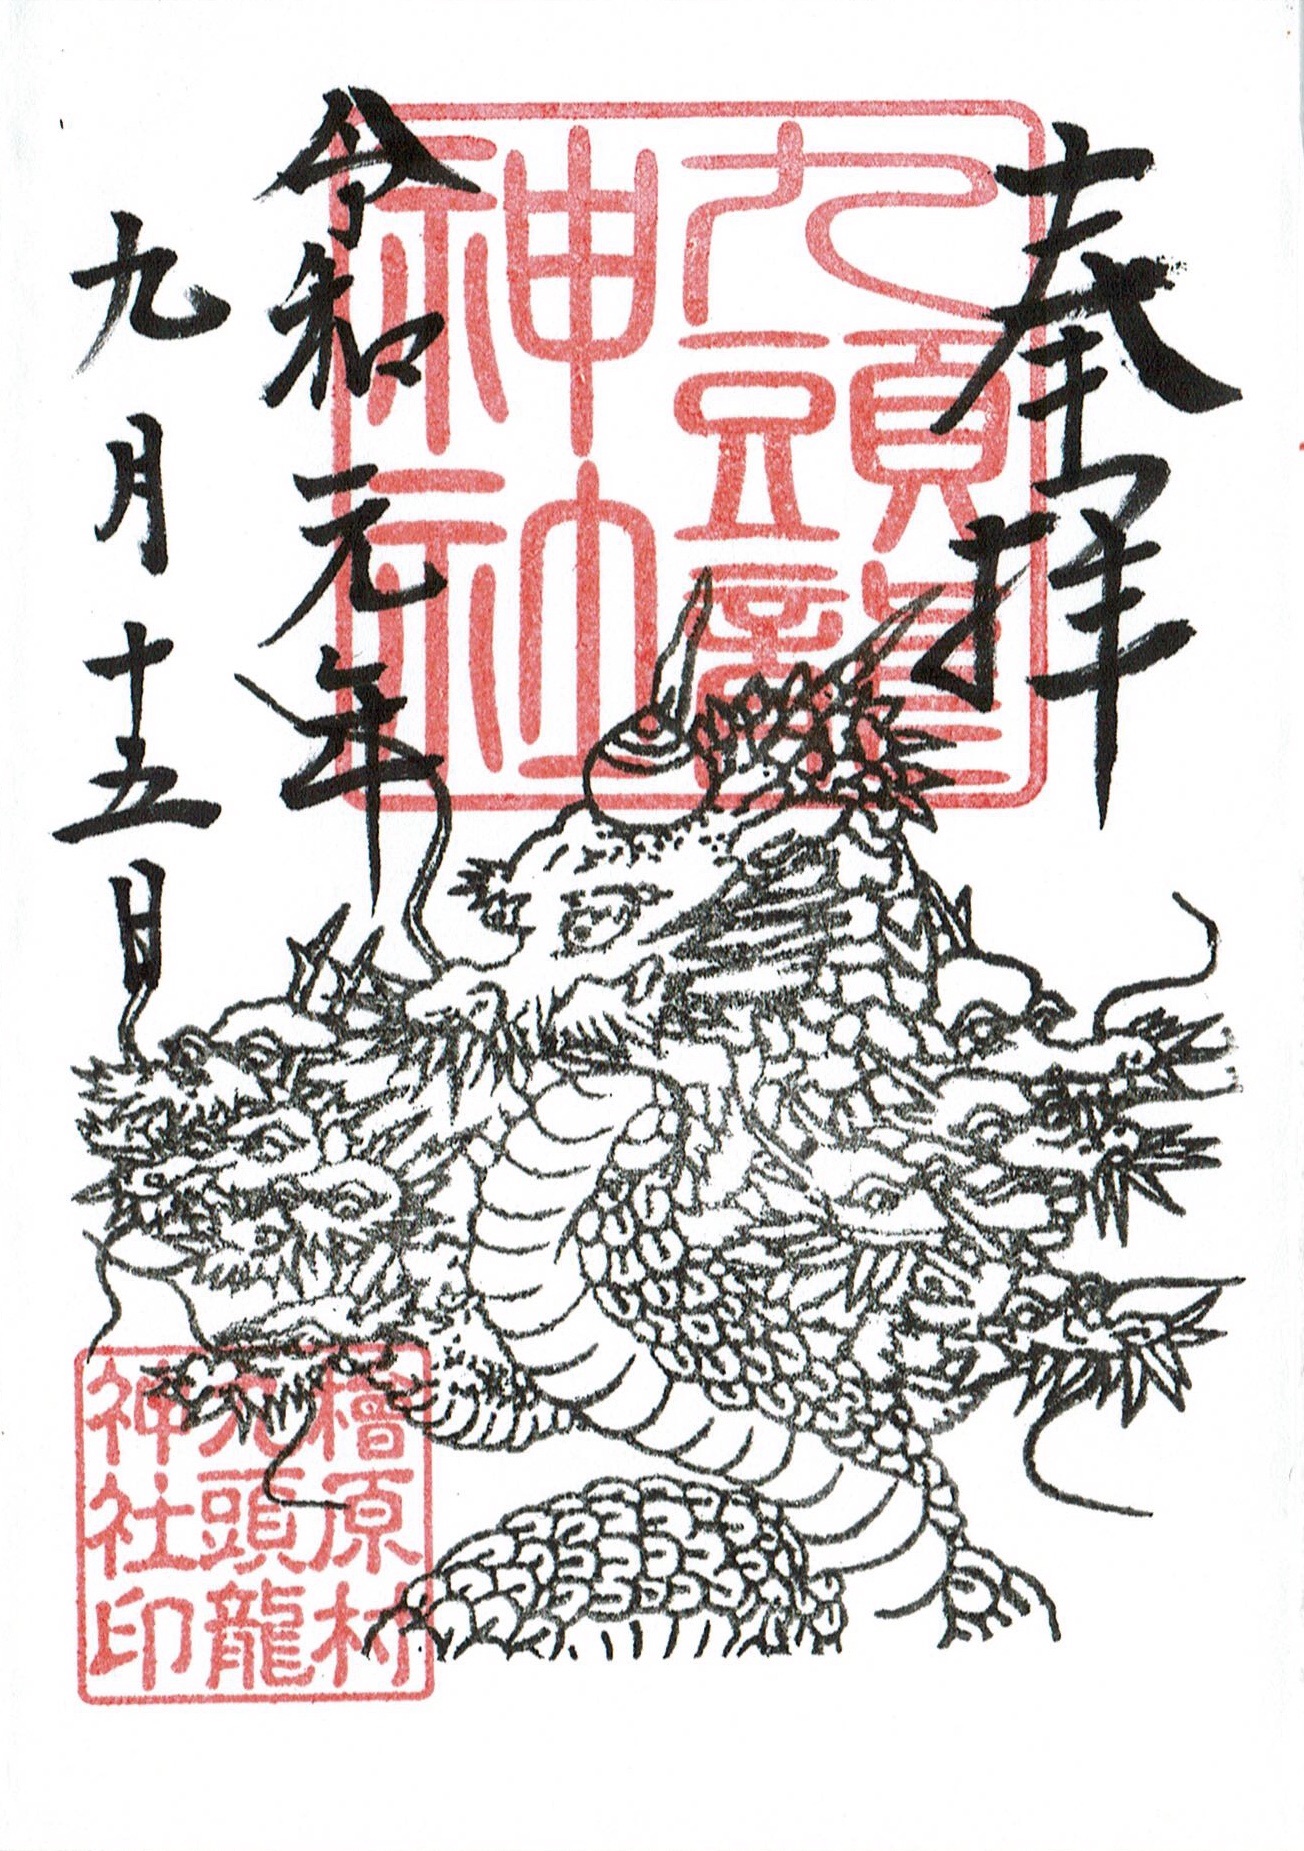 奉拝
九頭龍
神社
令和元年
九月十五日
檜原村
九頭龍
神社印